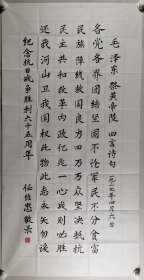 毛泽东 祭黄帝陵 四言诗句 一九三七年四月六日
各党各界团结坚固不论军民不分贫富
民族阵线救国良方四万万众坚决抵抗
民主共和改革内政亿兆一心战则必胜
还我河山卫我国权此物此志永矢勿谖
纪念抗日战争胜利六十五周年 任维忠敬录